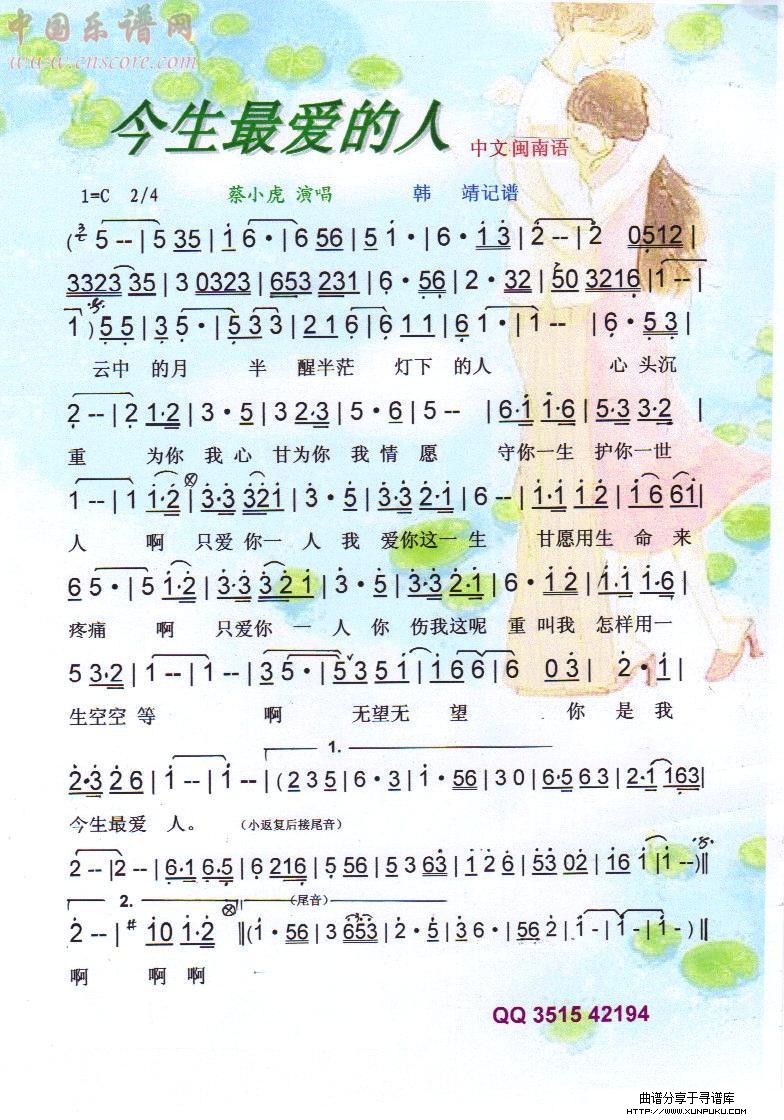 中国乐谱网
www.cnscore.com
今生最爱的人 中文闽南语
1=C 2/4 蔡小虎 演唱 韩 靖记谱
( 5 -- | 5 35 | 1 6 · | 6 56 | 5 1 · | 6 · 1 3 | 2 -- | 2 0512 |
3323 35 | 3 0323 | 653 231 | 6 · 56 | 2 · 32 | 50 3216 | 1 -- |
1 ) 5 5 | 3 5 · | 5 3 3 | 2 1 6 | 6 1 1 | 6 1 · | 1 -- | 6 · 5 3 |
云中 的月 半 醒半茫 灯下 的人 心头沉
2 -- | 2 1·2 | 3 · 5 | 3 2·3 | 5 · 6 | 5 -- | 6·1 1·6 | 5·3 3·2 |
重 为你 我心 甘为你 我情愿 守你一生 护你一世
1 -- | 1 1·2 | 3·3 321 | 3 · 5 | 3·3 2·1 | 6 -- | 1·1 1 2 | 1 6 61 |
人 啊 只爱 你一 人 我 爱你这一 生 甘愿用生 命 来
6 5 · | 5 1·2 | 3·3 3 2 1 | 3 · 5 | 3·3 2·1 | 6 · 1 2 | 1·1 1·6 |
疼痛 啊 只爱你 一 人 你 伤我这呢 重 叫我 怎样用一
5 3·2 | 1 -- | 1 -- | 3 5 · | 5 3 5 1 | 1 6 6 | 6 0 3 | 2 · 1 |
生空空 等 啊 无望无 望 你 是 我
1.
2·3 2 6 | 1 -- | 1 -- | ( 2 3 5 | 6 · 3 | 1 · 56 | 3 0 | 6·5 6 3 | 2·1 163 |
今生最爱 人。 （小返复后接尾音）
2 -- | 2 -- | 6·1 6·5 | 6 216 | 5 56 | 5 3 63 | 1 2 6 | 53 02 | 16 1 | 1 -- ) ‖
2. （尾音）
2 -- | # 10 1·2 ‖ ( 1 · 56 | 3 653 | 2 · 5 | 3 6 · | 56 2 | 1 - | 1 - | 1 - ) ‖
啊 啊 啊
QQ 3515 42194
曲谱分享于寻谱库
HTTP://WWW.XUNPUKU.COM